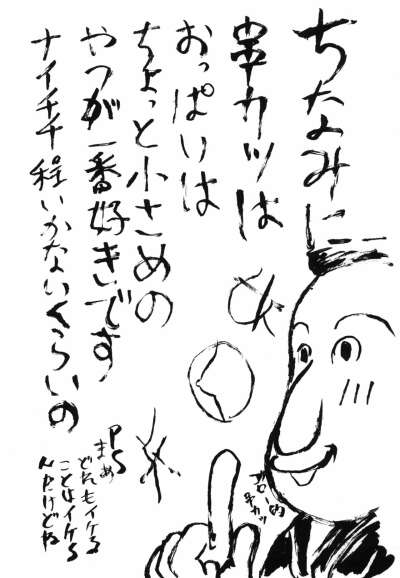 ちなみに
串カツは
おっぱいは
ちょっと小さめの
やつが一番好きです
ナイチチ程いかないくらいの
PS
まぁ
どれもイケる
ことはイケる
けどね
串カツ